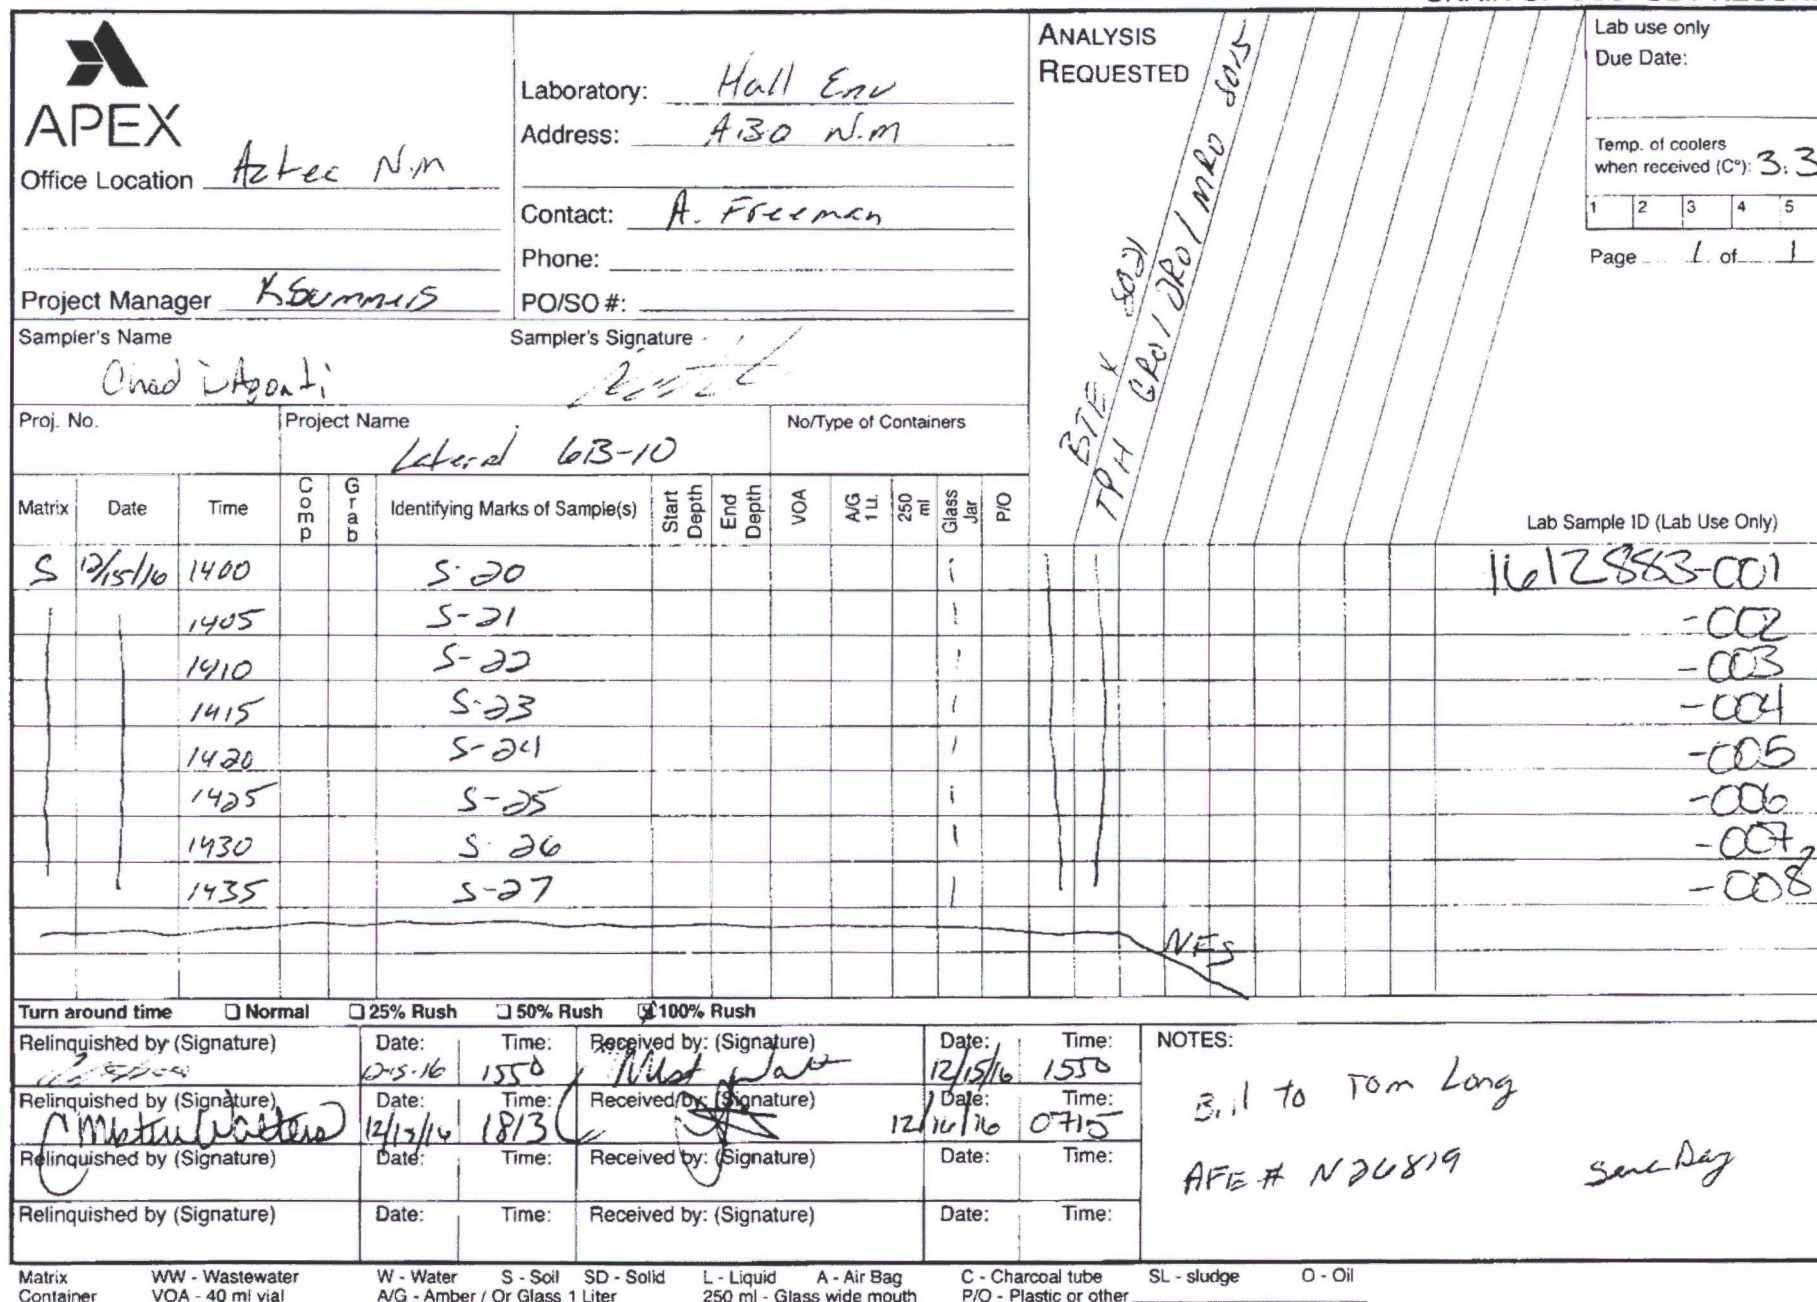 APEX
Office Location Aztec N.M
Project Manager K Summers
Laboratory: Hall Env
Address: ABQ N.M
Contact: A. Freeman
Phone:
PO/SO #:
ANALYSIS
REQUESTED
BTEX 8021
TPH GRO / DRO / MRO 8015
Lab use only
Due Date:
Temp. of coolers
when received (C°): 3.3
1 2 3 4 5
Page 1 of 1
Sampler's Name
Chad D'Aponti
Sampler's Signature
Proj. No.
Project Name
Lateral 6B-10
No/Type of Containers
Matrix Date Time Comp Grab Identifying Marks of Sample(s) Start Depth End Depth VOA A/G 1 Lt. 250 ml Glass Jar P/O Lab Sample ID (Lab Use Only)
S 12/15/16 1400 S-20 1 1612883-001
1405 S-21 1 -002
1410 S-22 1 -003
1415 S-23 1 -004
1420 S-24 1 -005
1425 S-25 1 -006
1430 S-26 1 -007
1435 S-27 1 -008
NFS
Turn around time Normal 25% Rush 50% Rush 100% Rush
Relinquished by (Signature) Date: Time: Received by: (Signature) Date: Time:
12-15-16 1550 12/15/16 1550
Relinquished by (Signature) Date: Time: Received by: (Signature) Date: Time:
12/15/16 1813 12/16/16 0715
Relinquished by (Signature) Date: Time: Received by: (Signature) Date: Time:
Relinquished by (Signature) Date: Time: Received by: (Signature) Date: Time:
NOTES:
Bill to Tom Long
AFE # N26819 Same Day
Matrix WW - Wastewater W - Water S - Soil SD - Solid L - Liquid A - Air Bag C - Charcoal tube SL - sludge O - Oil
Container VOA - 40 ml vial A/G - Amber / Or Glass 1 Liter 250 ml - Glass wide mouth P/O - Plastic or other